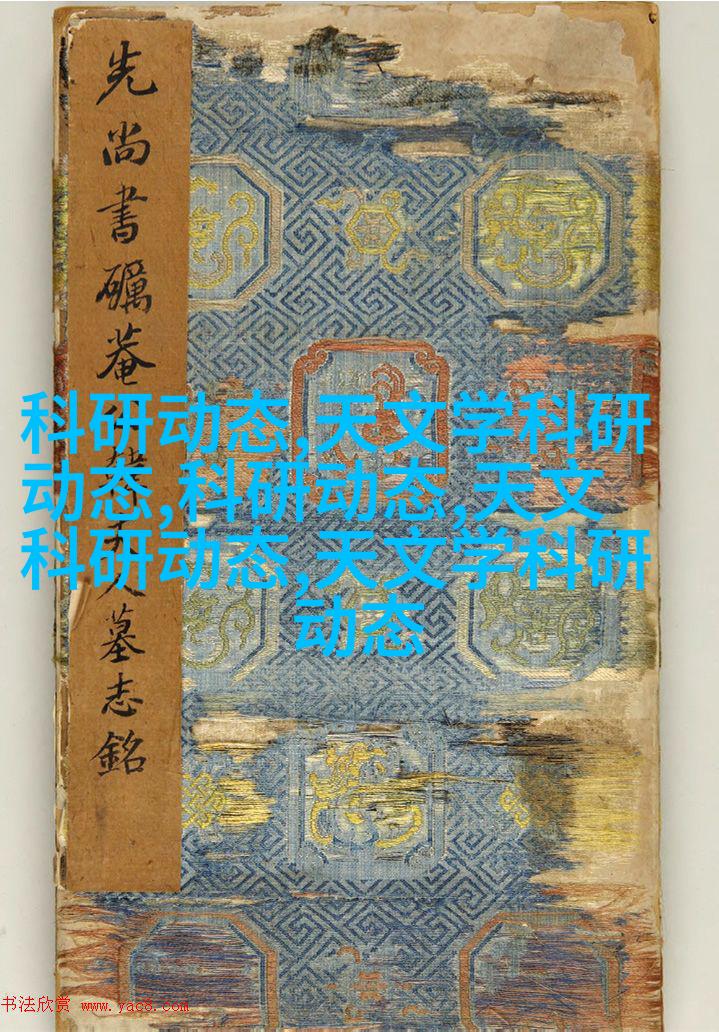 先尚書礪菴人墓志銘
科研动态,天文学科研
动态,科研动态,天文
科研动态,天文学科研
动态
书法欣赏 www.yac8.com